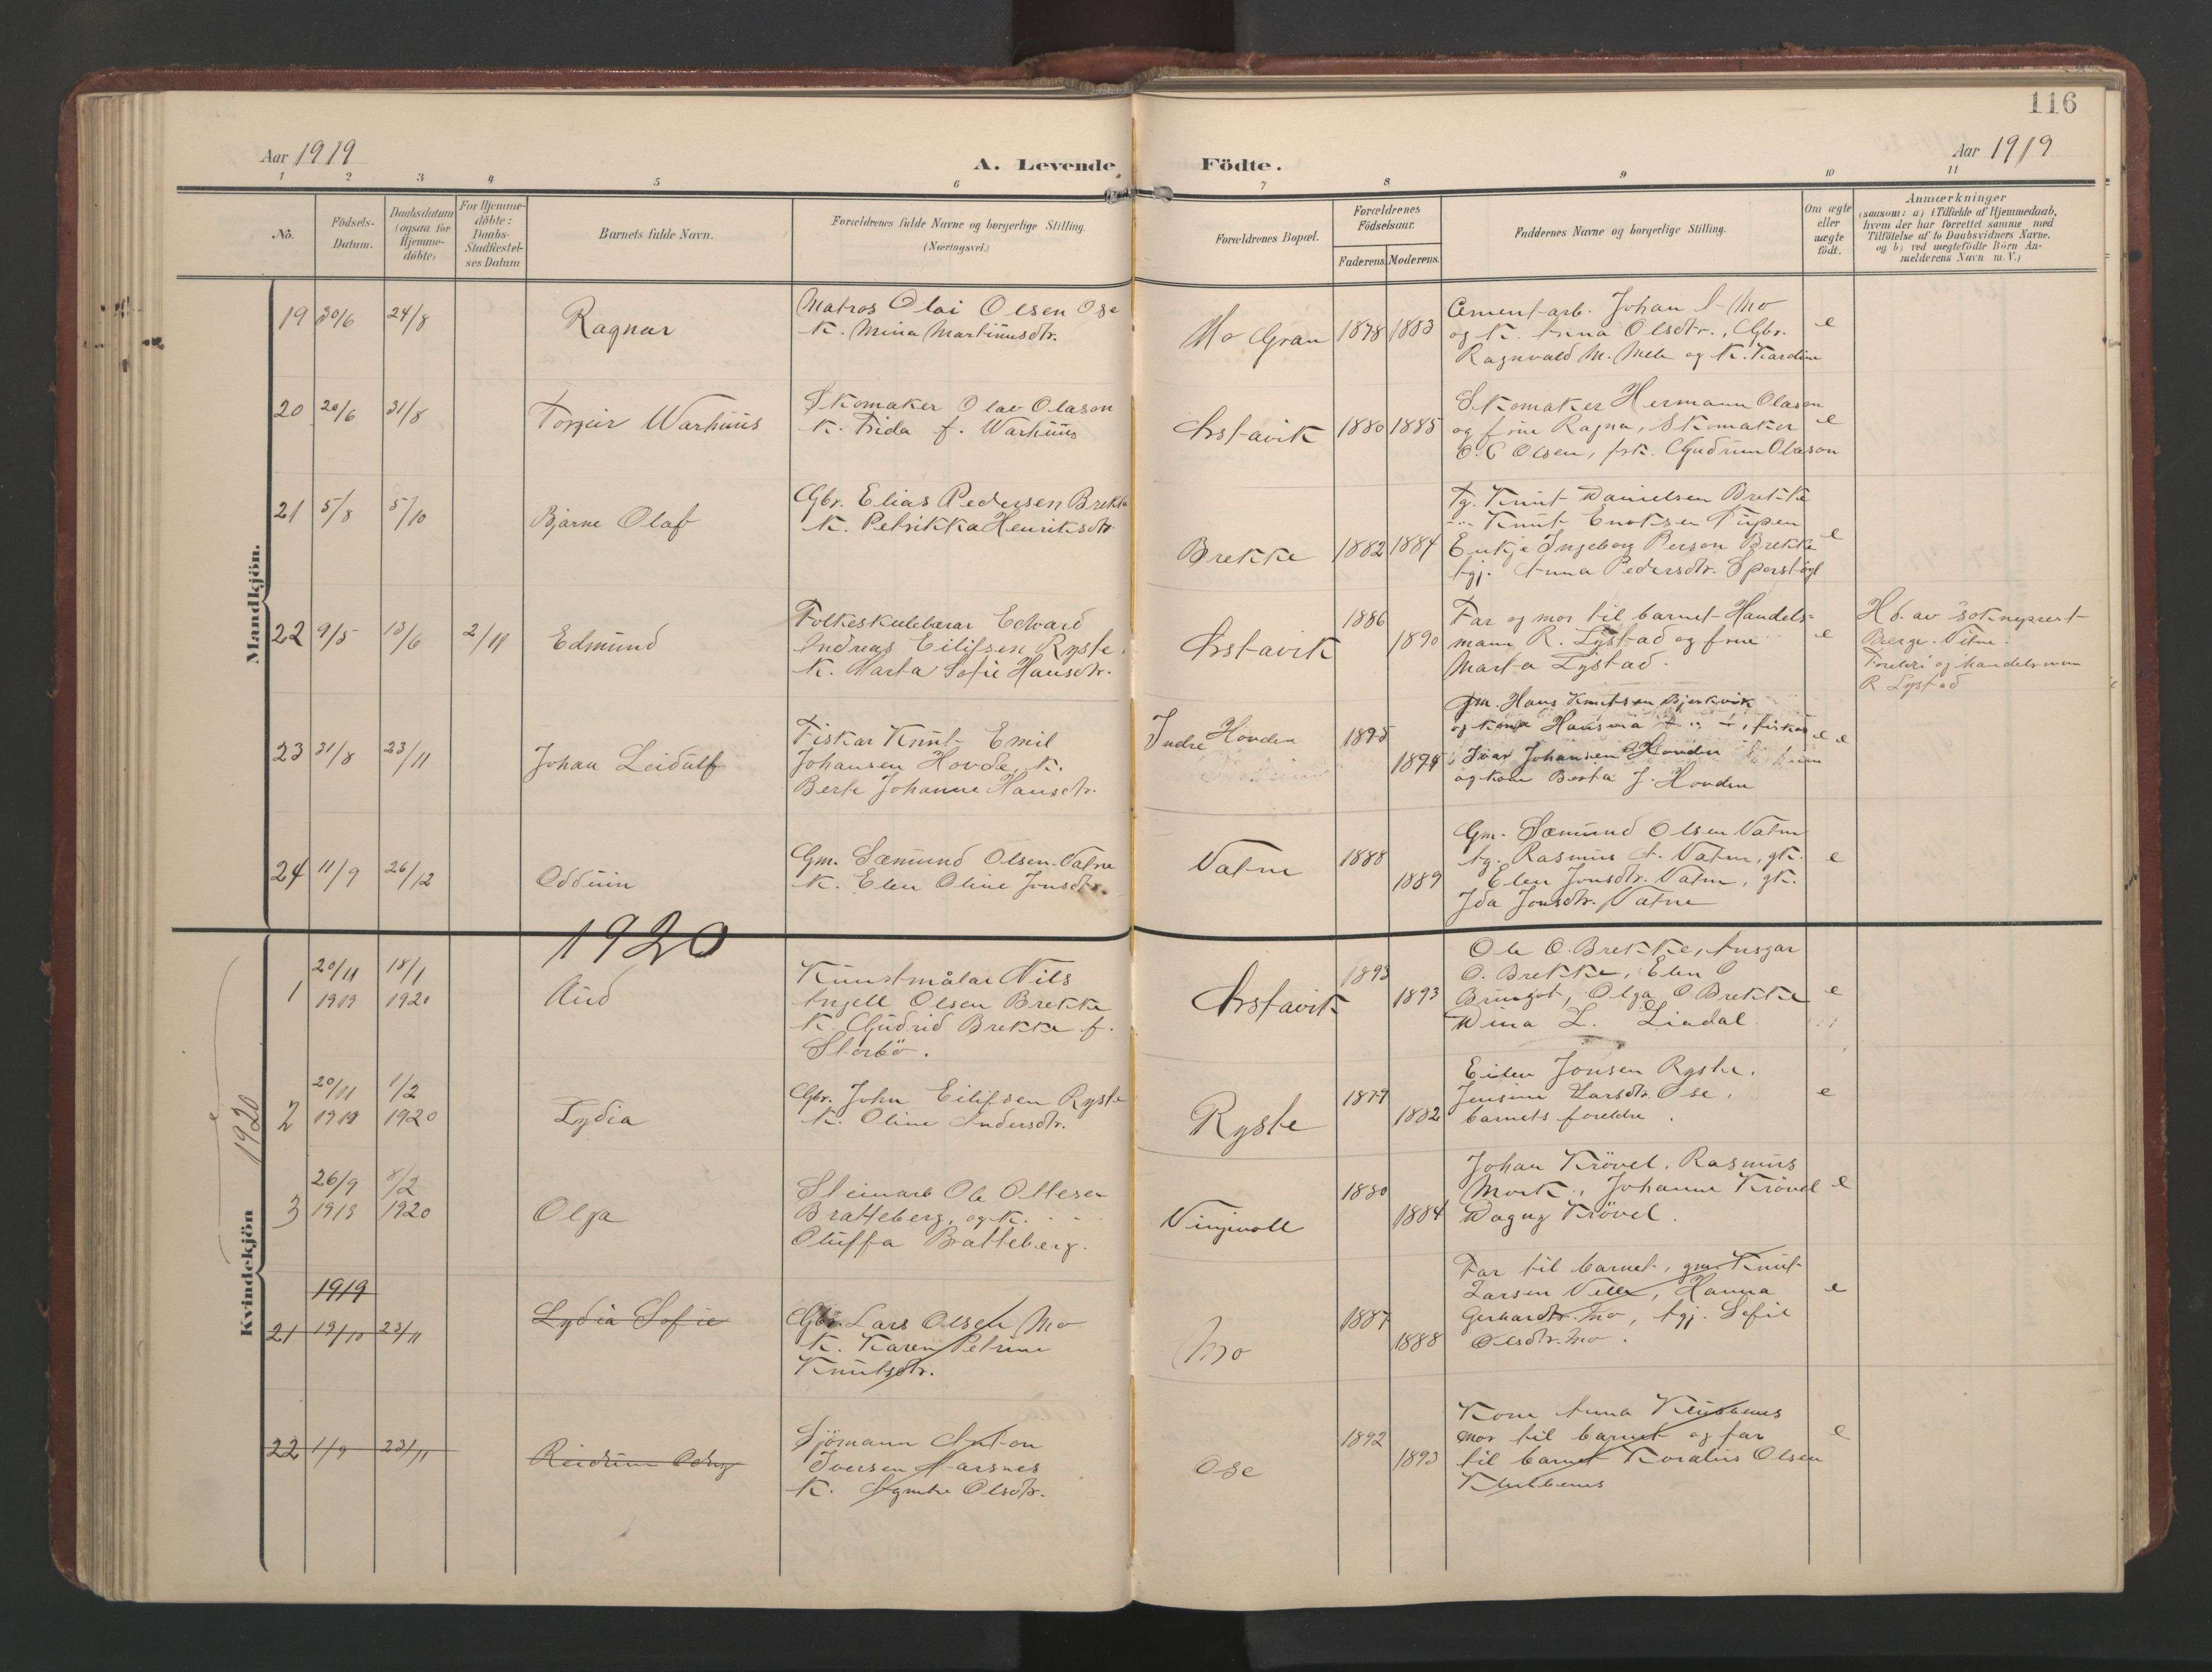 116
Aar 1919
A. Levende
Födte.
Aar 1919
1 2 3 4 5 6 7 8 9 10 11
No.
Födsels-
Datum.
Daabsdatum
(ogsaa for
Hjemme-
döbte)
For Hjemme-
döbte:
Daabs-
Stadfæstel-
ses Datum
Barnets fulde Navn.
Forældrenes fulde Navne og borgerlige Stilling.
(Næringsvei.)
Forældrenes Bopæl.
Forældrenes
Födselsaar.
Faderens. Moderens.
Faddernes Navne og borgerlige Stilling.
Om ægte
eller
uægte
födt.
Anmærkninger
(saasom: a) i Tilfælde af Hjemmedaab,
hvem der har forrettet samme med
Tilföielse af to Daabsvidners Navne,
og b) ved uægtefödte Börn An-
melderens Navn m. V.)
Mandkjön.
19 30/6 24/8
Ragnar
Matros Olai Olsen Ose
K. Mina Martinusdtr.
Mo Gran
1878 1883
Cementarb. Johan Mo
og K. Anna Olsdtr., Gbr.
Ragnvald M. Mele og K. Kardine
e
20 20/6 31/8
Torgeir Warhuus
Skomaker Olav Olason
K. Frida f. Warhuus
Örstavik
1880 1885
Skomaker Hermann Olasen
og frue Ragna, Skomaker
O. C Olsen, frk. Gudrun Olason
e
21 5/8 5/10
Bjarne Olaf
Gbr. Elias Pedersen Brekke
K. Petrikka Henriksdtr
Brekke
1882 1884
Tg. Knut Danielsen Brekke
Knut Enoksen
Enkje Ingeborg Person Brekke
tgj. Anna Pedersdtr.
e
22 9/5 13/6 2/11
Edmund
Folkeskulelærar Edvard
Andreas Eilifsen Ryste,
K. Marta Sofie Hansdtr.
Örstavik
1886
1890
Far og mor til barnet Handels-
mann R. Lystad og frue
Marta Lystad.
e
Hd. av sokneprest
Berge. Vitne:
Foreldri og handelsmann
R Lystad
23 31/8 23/11
Johan Leidulf
Fiskar Knut Emil
Johansen Hovde, K.
Berte Johanne Hansdtr.
Indre Hovden
1895
1894
Gm. Hans Knutsen Bjerkvik
og kona Hansina, fiskar
Ivar Johansen Hovden
og kona Berta J. Hovden
e e
24 11/9 26/12
Odduin
Gm. Sæmund Olsen Vatne
K. Elen Oline Jonsdtr.
Vatne
1888
1889
Gm. Sæmund Olsen Vatne
tg. Rasmus A. Vatne, gk.
Elen Jonsdtr. Vatne, gk.
Ida Jonsdtr. Vatne
e
1920
Kvindekjön 1920
1 20/11 1919 18/1 1920
Aud
Kunstmålar Nils
Angell Olsen Brekke
K. Gudrid Brekke f.
Storbö.
Örstavik
1893
1893
Ole O. Brekke, Ansgar
O. Brekke, Elen O
Brungot, Olga O Brekke
Dina L. Liadal.
e
2 20/11 1919 1/2 1920
Lydia
Gbr. John Eilifsen Ryste
K. Oline Andersdtr.
Ryste
1879
1882
Jonsen Ryste.
Jensine Larsdtr. Ose,
barnets foreldre.
e
3 26/9 1919 8/2 1920
Olga
Steinarb Ole Ottesen
Bratteberg, og K.
Oluffa Bratteberg.
Vinjevoll
1880
1884
Johan Krövel, Rasmus
Mork, Johanne Krövel
Dagny Krövel.
e
1919
21 19/10 23/11
Lydia Sofie
Gbr. Lars Olsen Mo
K. Karen Petrine
Knutsdtr.
Mo
1887
1888
Far til barnet, gm. Knut
Larsen Velle, Hanna
Gerhardtr. Mo, tgj. Sofie
Olsdtr. Mo.
e
22 1/9 23/11
Reidun
Sjömann Anton
Iversen Aarsnes
K. Agnethe Olsdtr.
Ose
1892
1893
Kone Anna Klubbenes
mor til barnet og far
til barnet Koralius Olsen
Klubbenes
e